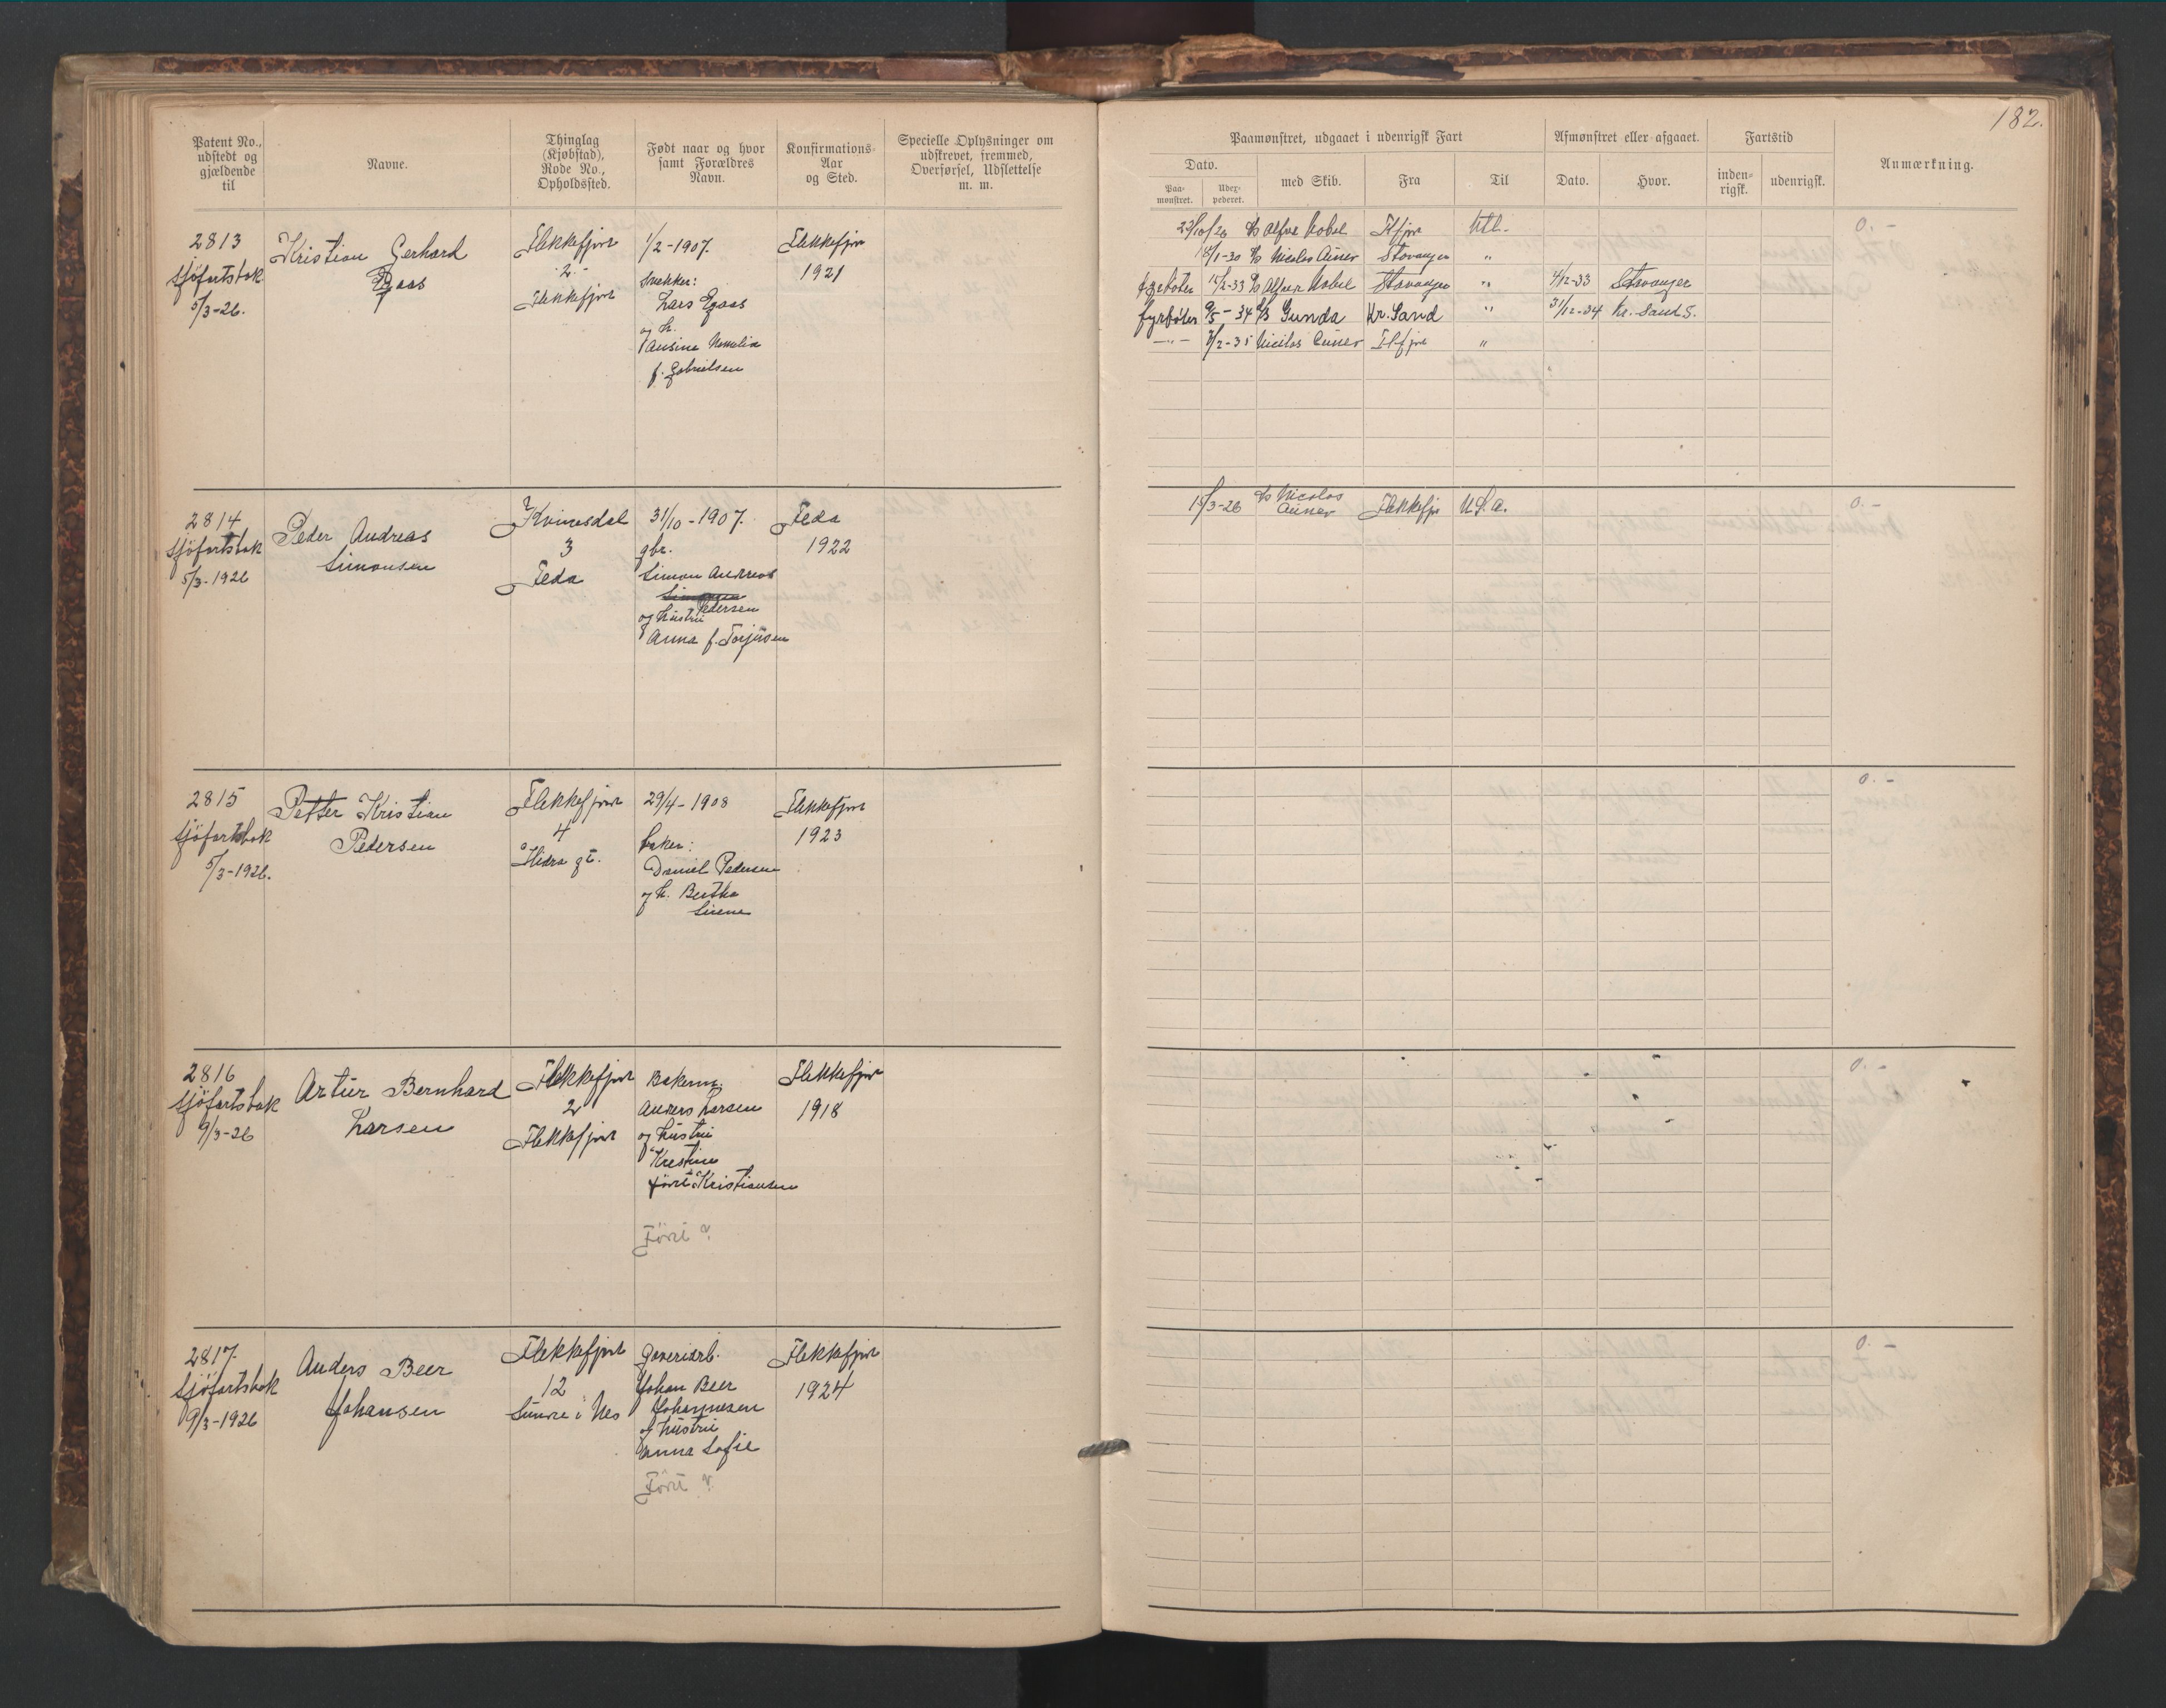 182.
Patent No., udstedt og gjældende til
Navne.
Thinglag (Kjøbstad), Rode No., Opholdssted.
Født naar og hvor samt Forældres Navn.
Konfirmations-Aar og Sted.
Specielle Oplysninger om udskrevet, fremmed, Overførsel, Udslettelse m. m.
Paamønstret, udgaaet i udenrigsk Fart
Dato.
Paa-mønstret.
Udex-pederet.
med Skib.
Fra
Til
Afmønstret eller afgaaet.
Dato.
Hvor.
Fartstid
inden-rigsk.
udenrigsk.
Anmærkning.
2813
sjöfartsbok
5/3-26.
Kristian Gerhard
Flekkefjord
2
Flekkefjord
1/2-1907.
snekker:
Lars
og h.
f. Gabrielsen
Flekkefjord
1921
23/10/26 D/S Alfred Nobel Fl.fjord Utl.
18/1-30 D/S Nicolas Cuneo Stavanger "
fyrböter 15/2-33 D/S Alfred Nobel Stavanger " 4/12-33 Stavanger
fyrböter 9/5-34 D/S Gunda Kr.Sand " 31/12-34 Kr.Sand S.
-"- 7/2-35 Nicolas Cuneo Fl.fjord "
0.-
2814
sjöfartsbok
5/3-1926
Peder Andreas
Simonsen
Kvinesdal
3
Feda
31/10-1907.
gbr.
Simon Andreas
Pedersen
og hustru
Anna f. Torjusen
Feda
1922
15/3-26 D/S Nicolas Cuneo Flekkefjo U.S.a.
0.-
2815
sjöfartsbok
5/3-1926.
Petter Kristian
Pedersen
Flekkefjord
4
Hidra gt.
29/4-1908
baker:
Daniel Pedersen
og h. Bertha
Sirene
Flekkefjord
1923
0.-
2816
sjöfartsbok
9/3-26
Artur Bernhard
Larsen
Flekkefjord
2
Flekkefjord
Bakerm.
Anders Larsen
og hustru
Krestine
födt Kristiansen
Födt ?
Flekkefjord
1918
0.-
2817.
sjöfartsbok
9/3-1926
Anders Beer
Johansen
Flekkefjord
12
Sunde i Nes
Garveriarb.
Johan Beer
Johannesen
og hustru
Anna Sofie
Födt ?
Flekkefjord
1924
0.-